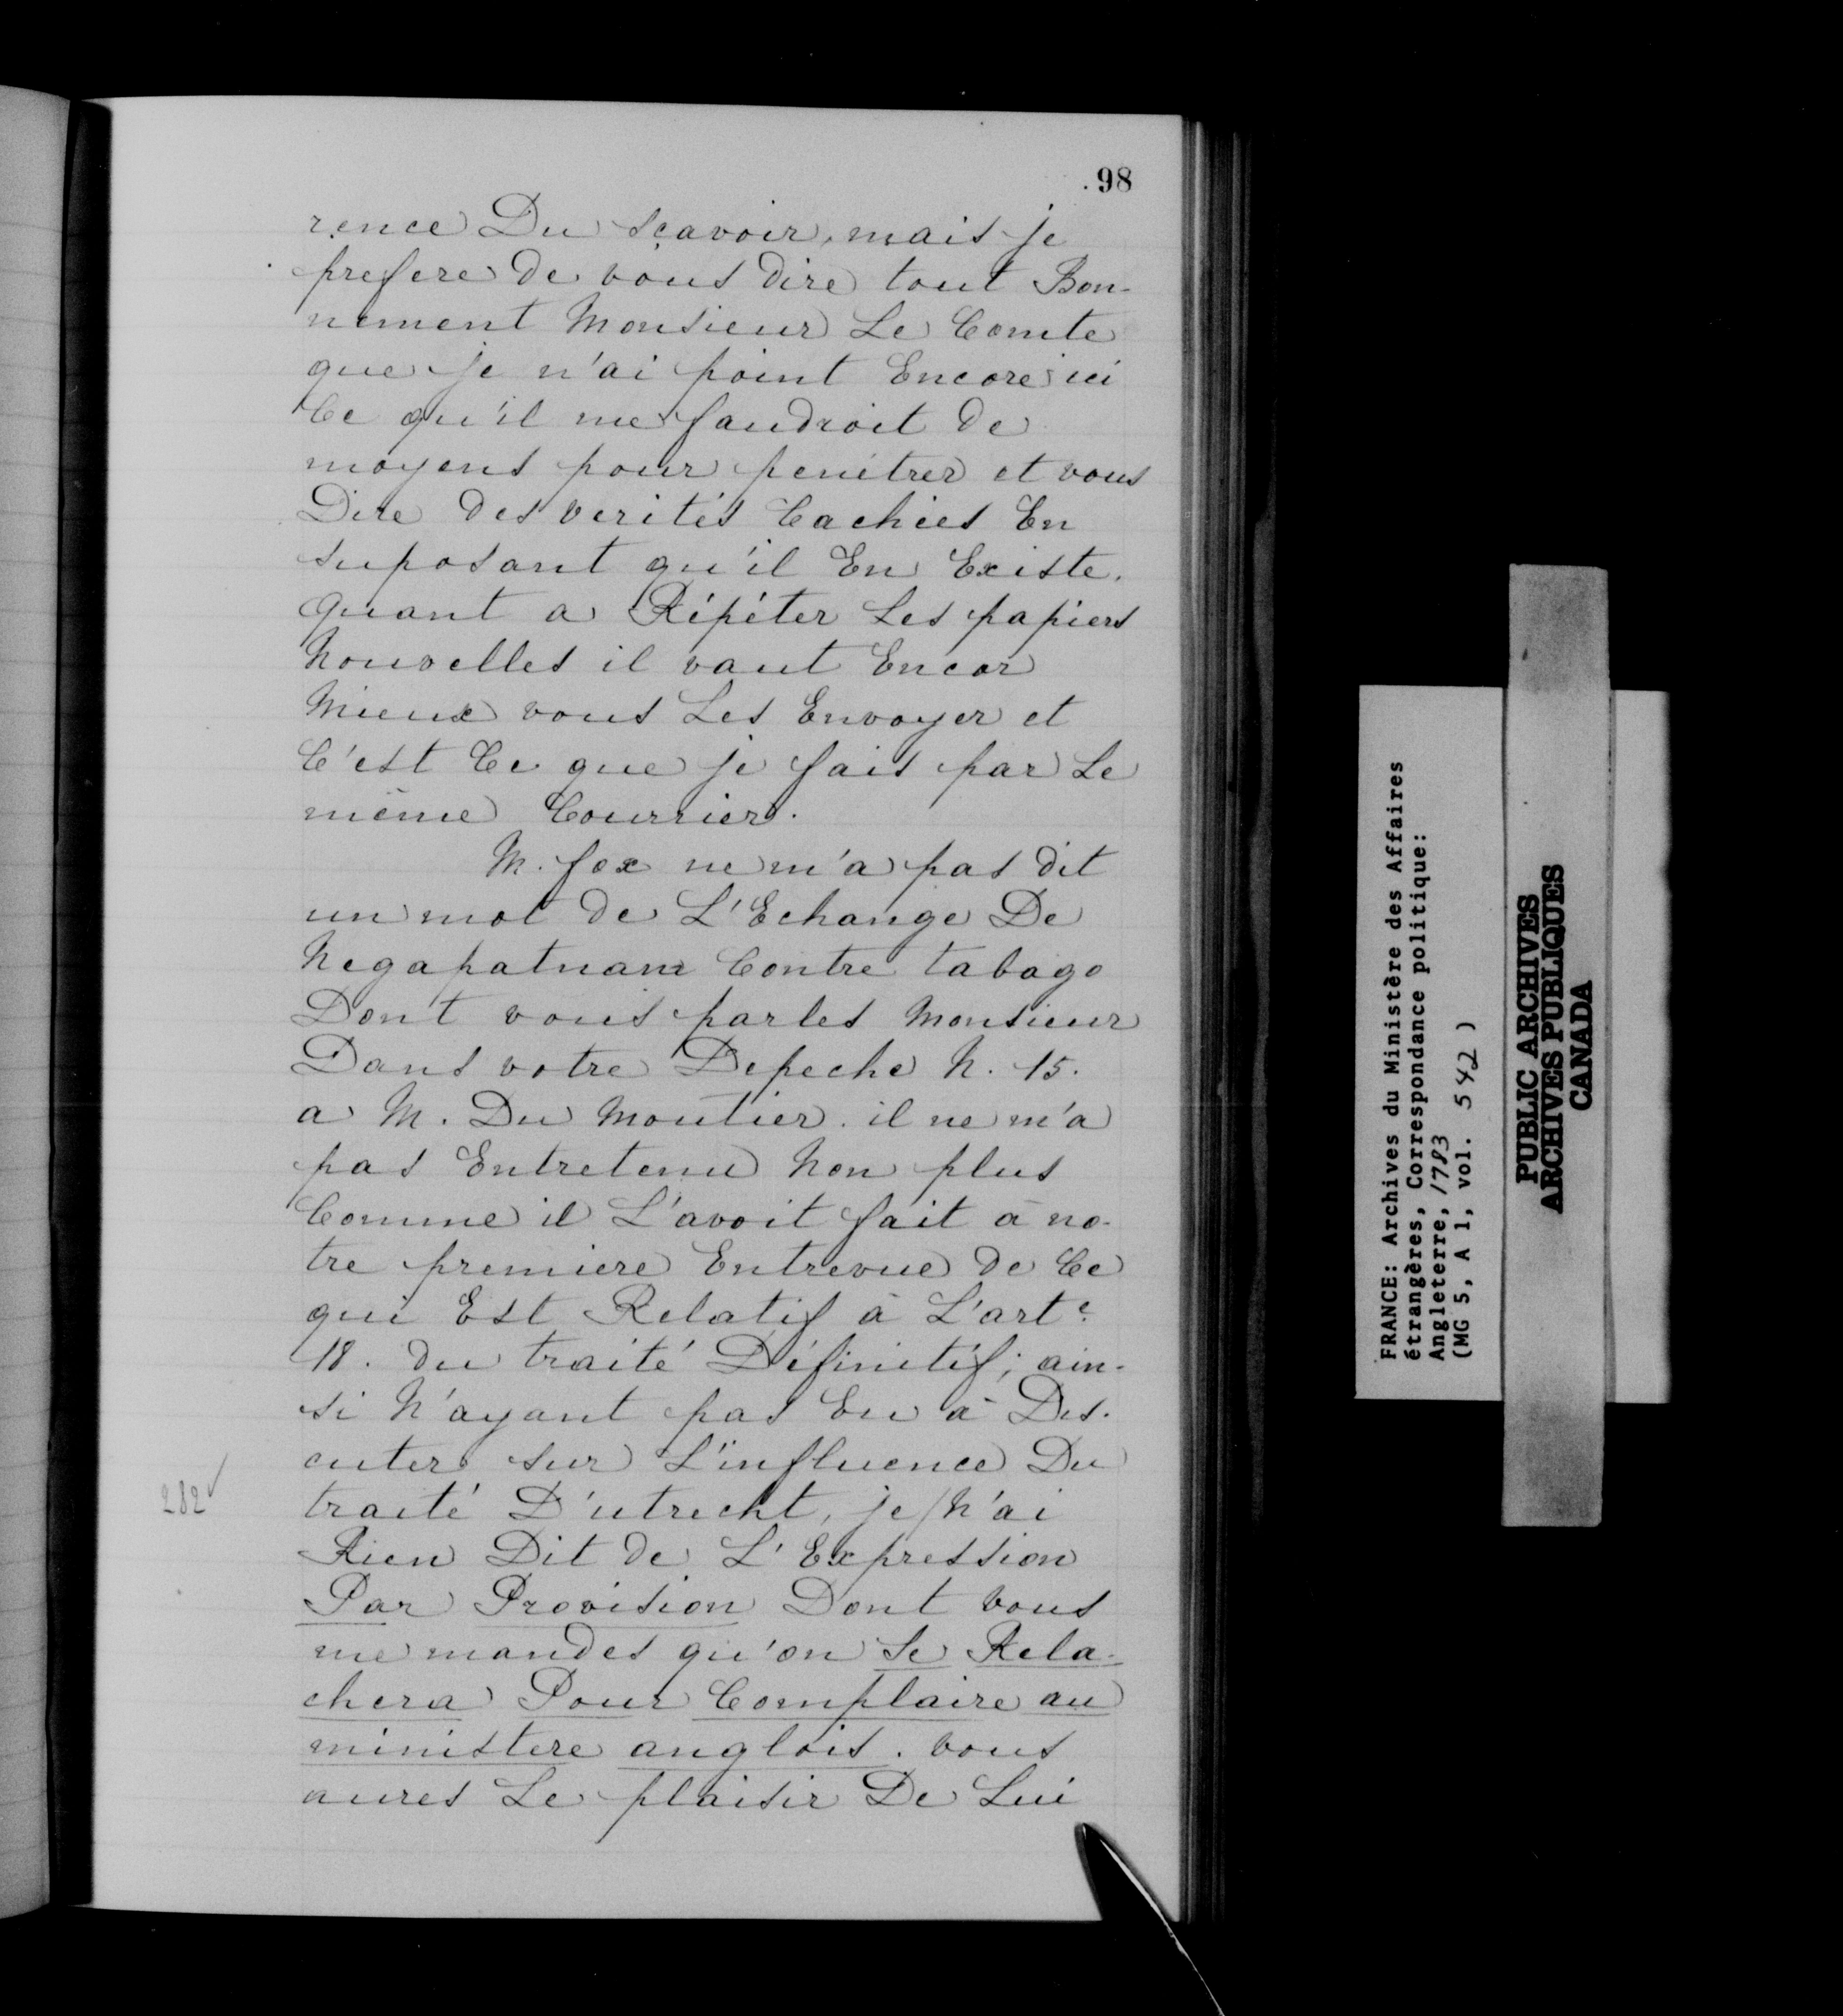 98
rence Du sçavoir, mais je
prefere de vous dire tout Bon-
nement Monsieur Le Comte
que je n'ai point Encore ici
Ce qu'il me faudroit de
moyens pour penétrer et vous
Dire des verités Cachées En
suposant qu'il En Existe.
Quant a Répéter Les papiers
Nouvelles il vaut Encor
Mieux vous Les Envoyer et
C'est Ce que je fais par Le
même Courrier.
M. fox ne m'a pas dit
un mot de L'Echange De
Negapatnam Contre tabago
Dont vous parles Monsieur
Dans votre Depeche N. 15.
a M. Du Moutier. il ne m'a
pas Entretenu Non plus
Comme il L'avoit fait à no-
tre premiere Entrevue de Ce
qui Est Relatif à L'art.e
18. du traité Définitif; ain-
si N'ayant pas Eu à Dis-
cuter sur L'influence Du
282
traité D'utrecht, je / N'ai
Rien Dit de L'Expression
Par Provision Dont vous
me mandes qu'on se Rela-
chera Pour Complaire au
ministere anglois. vous
aures Le plaisir De Lui
FRANCE: Archives du Ministère des Affaires
étrangères, Correspondance politique:
Angleterre, 1783
(MG 5, A 1, vol. 542 )
PUBLIC ARCHIVES
ARCHIVES PUBLIQUES
CANADA